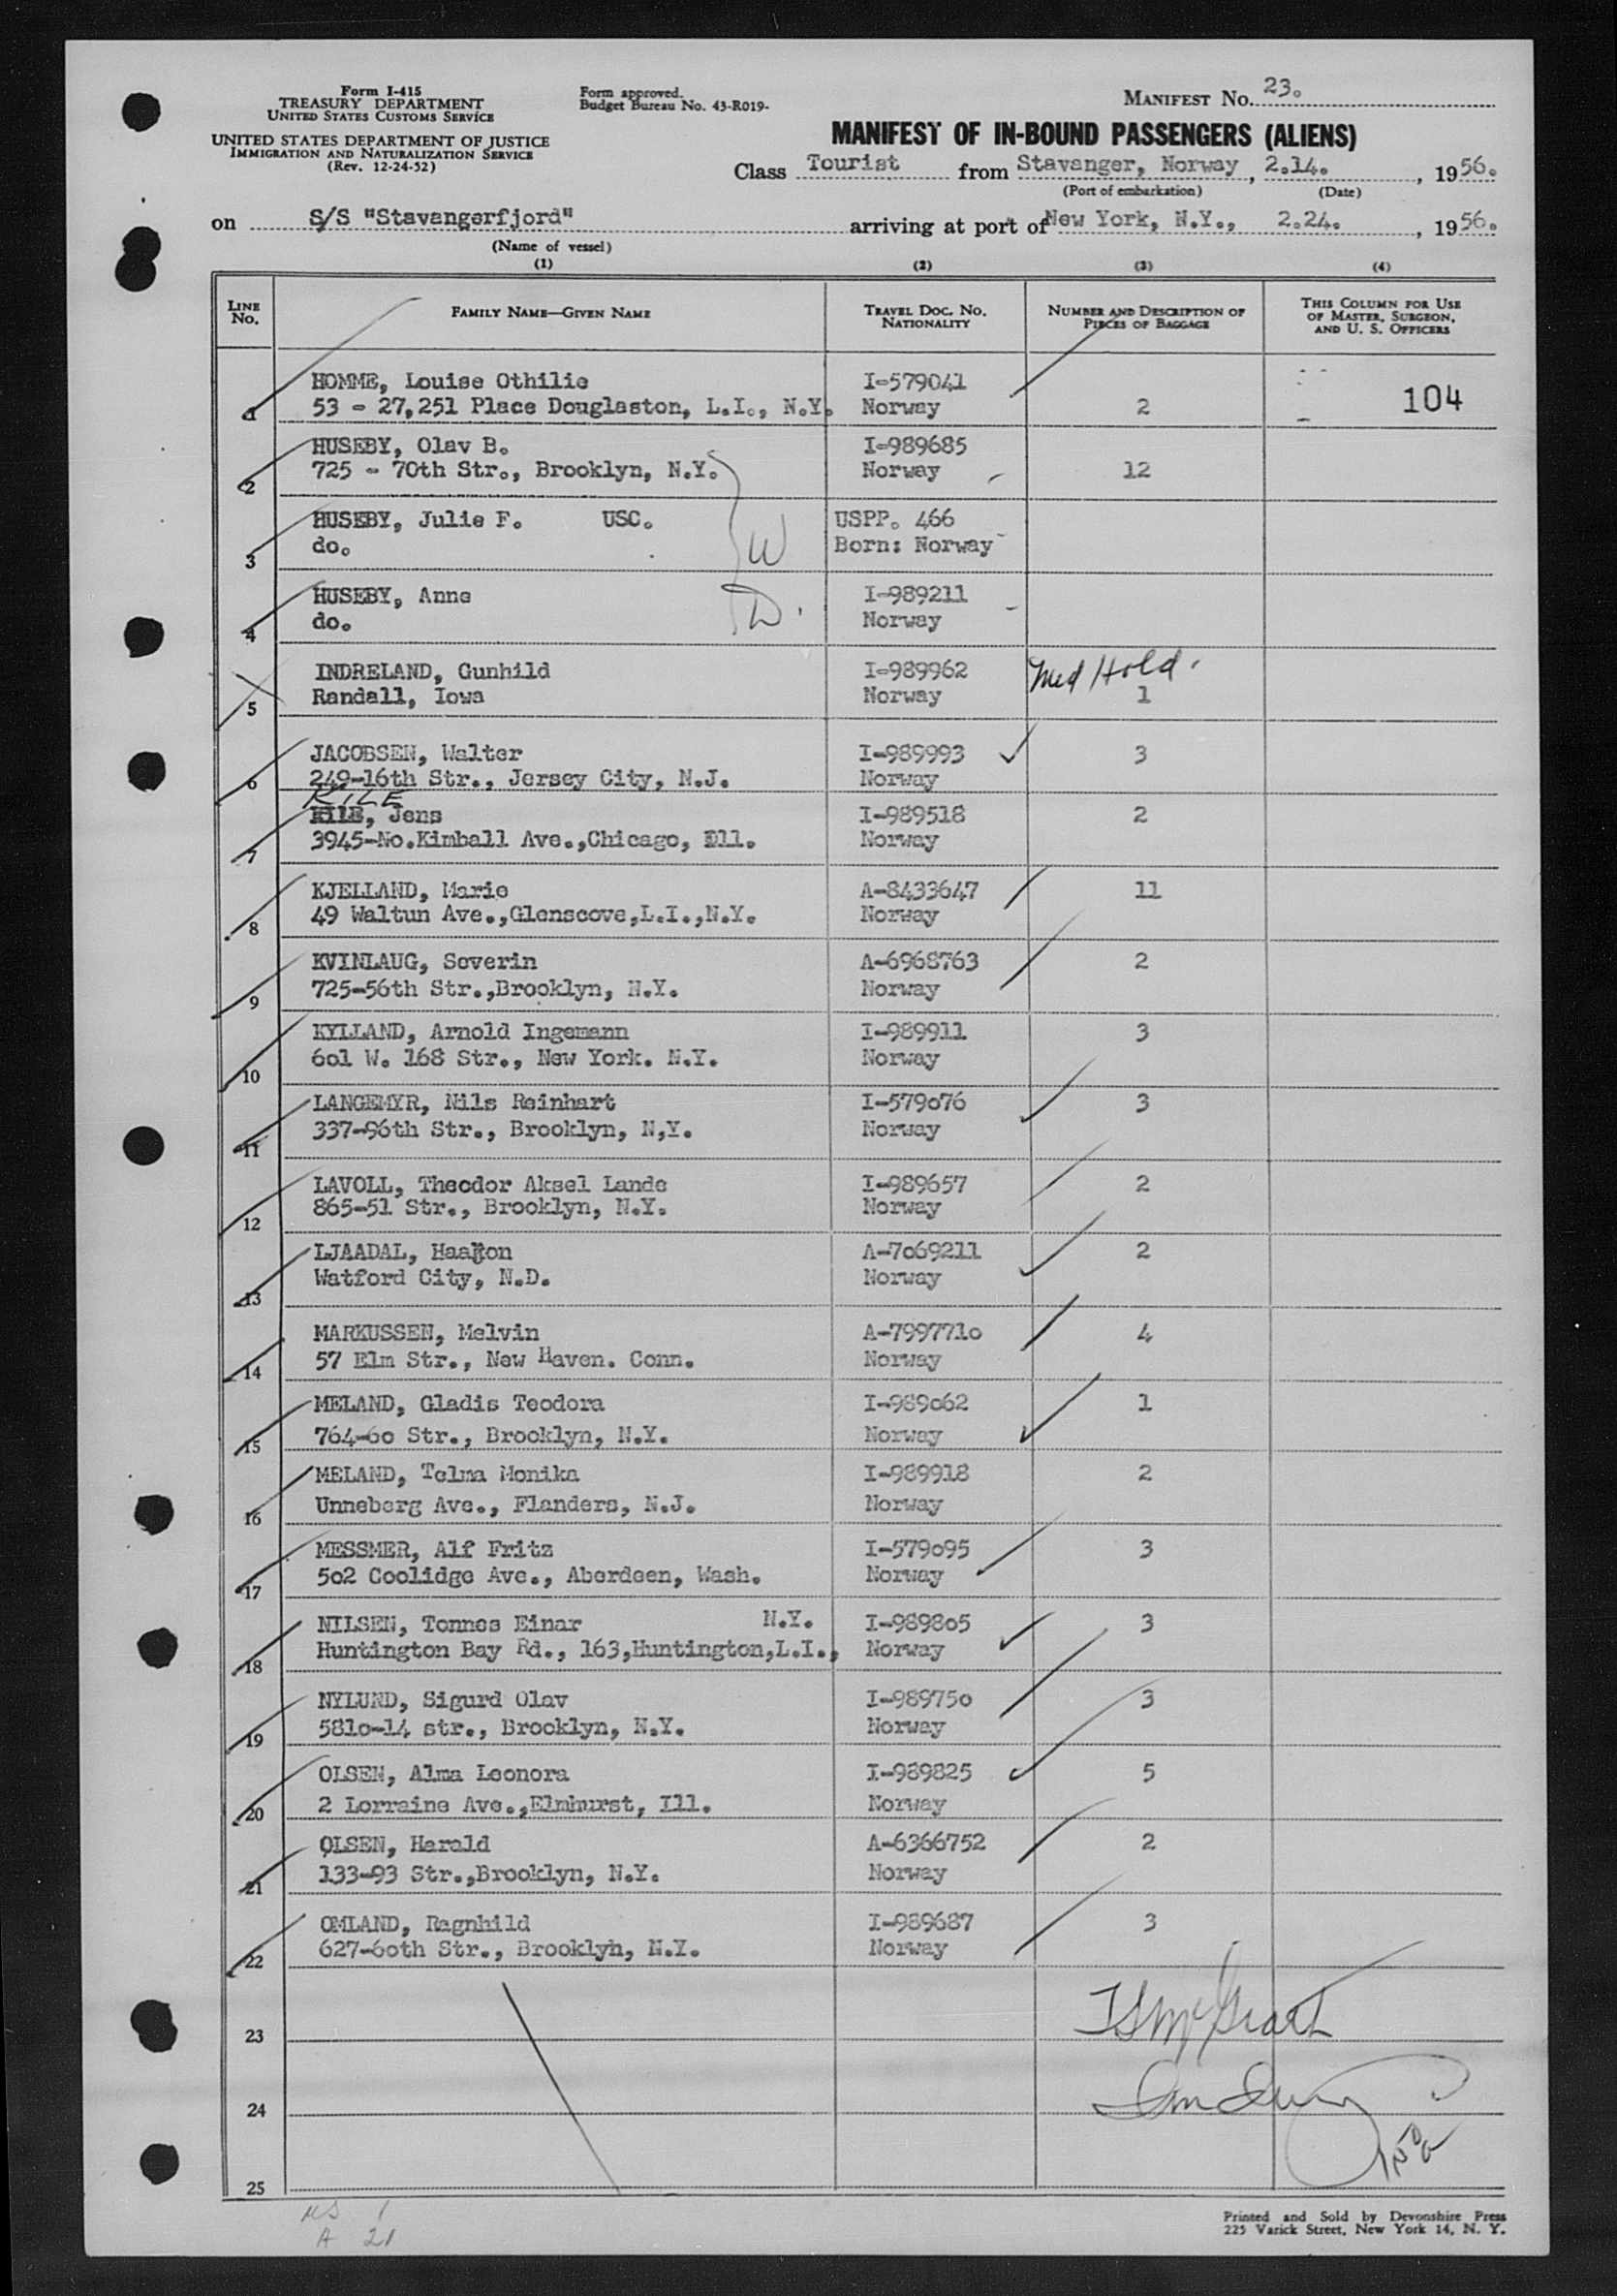 Form I-415
TREASURY DEPARTMENT
UNITED STATES CUSTOMS SERVICE
UNITED STATES DEPARTMENT OF JUSTICE
IMMIGRATION AND NATURALIZATION SERVICE
(Rev. 12-24-52)
Form approved.
Budget Bureau No. 43-R019-
MANIFEST NO. 23.
MANIFEST OF IN-BOUND PASSENGERS (ALIENS)
Class Tourist from Stavanger, Norway, 2.14., 1956.
(Port of embarkation) (Date)
on S/S "Stavangerfjord" arriving at port of New York, N.Y., 2.24., 1956.
(Name of vessel)
(1) (2) (3) (4)
LINE NO. FAMILY NAME—GIVEN NAME TRAVEL DOC. NO. NATIONALITY NUMBER AND DESCRIPTION OF PIECES OF BAGGAGE THIS COLUMN FOR USE OF MASTER, SURGEON, AND U. S. OFFICERS
HOMME, Louise Othilie I-579041
1 53 - 27,251 Place Douglaston, L.I., N.Y. Norway 2 104
HUSEBY, Olav B. I-989685
2 725 - 70th Str., Brooklyn, N.Y. Norway 12
HUSEBY, Julie F. USC. USPP. 466
3 do. W Born: Norway
HUSEBY, Anne I-989211
4 do. D. Norway
INDRELAND, Gunhild I-989962 Med Hold.
5 Randall, Iowa Norway 1
JACOBSEN, Walter I-989993 3
6 249-16th Str., Jersey City, N.J. Norway
RILE
KILE, Jens I-989518 2
7 3945-No.Kimball Ave.,Chicago, Ill. Norway
KJELLAND, Marie A-8433647 11
8 49 Waltun Ave.,Glenscove,L.I.,N.Y. Norway
KVINLAUG, Severin A-6968763 2
9 725-56th Str.,Brooklyn, N.Y. Norway
KYLLAND, Arnold Ingemann I-989911 3
10 6o1 W. 168 Str., New York. N.Y. Norway
LANGEMYR, Nils Reinhart I-579o76 3
11 337-96th Str., Brooklyn, N,Y. Norway
LAVOLL, Theodor Aksel Lande I-989657 2
12 865-51 Str., Brooklyn, N.Y. Norway
LJAADAL, Haakon A-7o69211 2
13 Watford City, N.D. Norway
MARKUSSEN, Melvin A-799771o 4
14 57 Elm Str., New Haven. Conn. Norway
MELAND, Gladis Teodora I-989o62 1
15 764-6o Str., Brooklyn, N.Y. Norway
MELAND, Telma Monika I-989918 2
16 Unneberg Ave., Flanders, N.J. Norway
MESSMER, Alf Fritz I-579o95 3
17 5o2 Coolidge Ave., Aberdeen, Wash. Norway
NILSEN, Tonnes Einar N.Y. I-9898o5 3
18 Huntington Bay Rd., 163,Huntington,L.I., Norway
NYLUND, Sigurd Olav I-98975o 3
19 581o-14 str., Brooklyn, N.Y. Norway
OLSEN, Alma Leonora I-989825 5
20 2 Lorraine Ave.,Elmhurst, Ill. Norway
OLSEN, Harald A-6366752 2
21 133-93 Str.,Brooklyn, N.Y. Norway
OMLAND, Ragnhild I-989687 3
22 627-6oth Str., Brooklyh, N.Y. Norway
23
24
25
1
A 21
Printed and Sold by Devonshire Press
225 Varick Street, New York 14, N. Y.